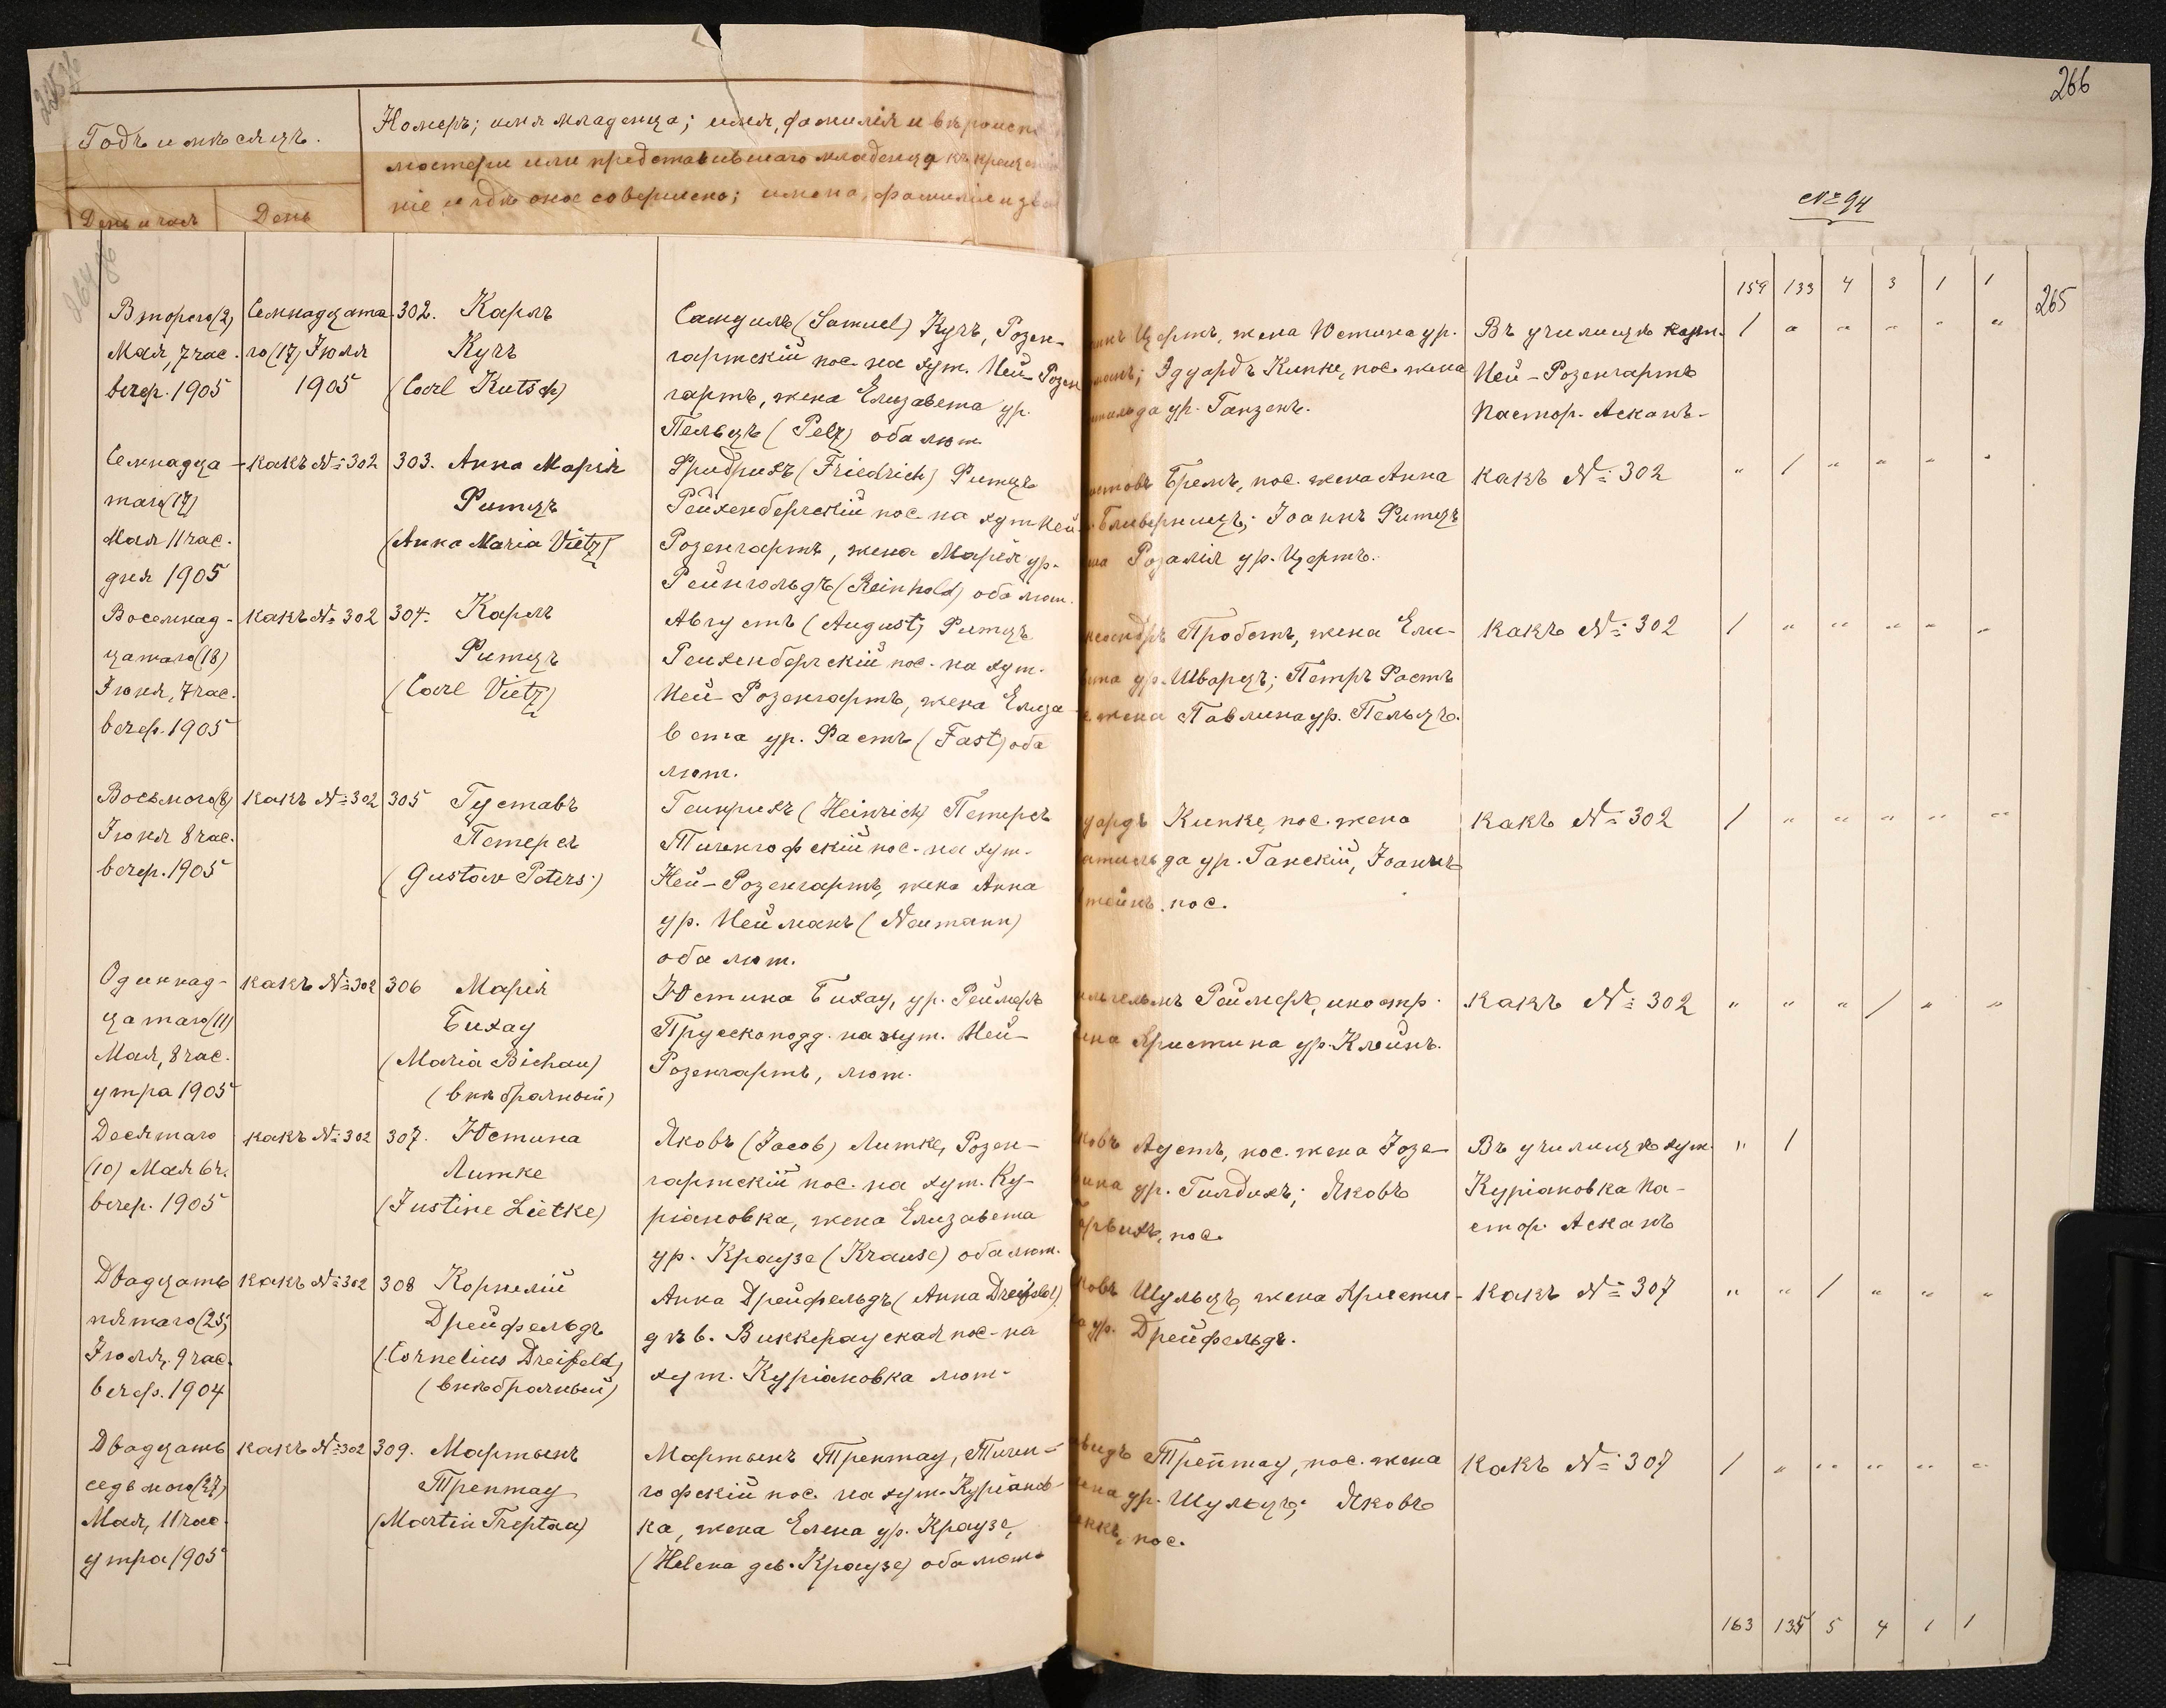 266
№ 94
Годъ и мѣсяцъ.
Номеръ; имя младенца; имя, фамилія и вѣроиспо
матери или представившаго младенца къ крещенію
ніе и гдѣ оное совершено; имена, фамиліи и зва
День и часъ
День
159 133 4 3 1 1
265
Второго (2)
Мая, 7 час.
вечер. 1905
Семнадцата-
го (17) Іюля
1905
302. Карлъ
Кучъ
(Carl Kutsch)
Самуилъ (Samuel) Кучъ, Розен-
гартскій пос. на хут. Ней-Розен
гартъ, жена Елизавета ур.
Пельцъ (Pelz) оба лют.
Цертъ, жена Юстина ур.
Эдуардъ Кинке, пос. жена
ур. Ганзенъ.
Въ училищѣ хут.
Ней-Розенгартъ
Пастор. Асканъ-
1 " " " " "
Семнадца-
таго (17)
Мая 11 час.
дня 1905
какъ № 302
303. Анна Марія
Фитцъ
(Anna Maria Vietz)
Фридрихъ (Friedrich) Фитцъ
Рейхенбергскій пос. на хут. Ней-
Розенгартъ, жена Марія ур.
Рейнгольдъ (Reinhold) оба лют.
Бремъ, пос. жена Анна
Іоаннъ Фитцъ
Розалія ур. Цертъ.
какъ № 302
" 1 " " " "
Восемнад-
цатаго (18)
Іюня, 7 час.
вечер. 1905
какъ № 302
304. Карлъ
Фитцъ
(Carl Vietz)
Августъ (August) Фитцъ
Рейхенбергскій пос. на хут.
Ней-Розенгартъ, жена Елиза-
вета ур. Фастъ (Fast) оба
лют.
Пробстъ, жена Ели-
ур. Шварцъ; Петръ Фастъ
жена Павлина ур. Пельцъ.
какъ № 302
1 " " " " "
Восьмого (8)
Іюня 8 час.
вечер. 1905
какъ № 302
305 Густавъ
Петерсъ
(Gustav Peters)
Генрихъ (Heinrich) Петерсъ
Тигенгофскій пос. на хут.
Ней-Розенгартъ, жена Анна
ур. Нейманъ (Neumann)
оба лют.
Кинке, пос. жена
да ур. Ганскій, Іоаннъ
пос.
какъ № 302
1 " " " " "
Одиннад-
цатаго (11)
Мая, 8 час.
утра 1905
какъ № 302
306 Марія
Бихау
(Maria Bichau)
(внѣбрачный)
Юстина Бихау, ур. Реймеръ
Прусскоподд. на хут. Ней-
Розенгартъ, лют.
Реймеръ, иностр.
Христина ур. Клейнъ.
какъ № 302
" " " 1 " "
Десятаго
(10) Мая 6 ч.
вечер. 1905
какъ № 302
307. Юстина
Литке
(Justine Lietke)
Яковъ (Jacob) Литке, Розен-
гартскій пос. на хут. Ку-
ріановка, жена Елизавета
ур. Краузе (Krause) оба лют.
Аустъ, пос. жена Іозе-
ур. Гилдихъ; Яковъ
пос.
Въ училищѣ хут.
Куріановка Па-
стор. Асканъ
" 1
Двадцать
пятаго (25)
Іюля, 9 час.
вечер. 1904
какъ № 302
308 Корнелій
Дрейфельдъ
(Cornelius Dreifeld)
(внѣбрачный)
Анна Дрейфельдъ (Anna Dreifeld)
дѣв. Виккерауская пос. на
хут. Куріановка лют.
Шульцъ, жена Христи-
ур. Дрейфельдъ.
какъ № 307
" " 1 " " "
Двадцать
седьмого (27)
Мая, 11 час.
утра 1905
какъ № 302
309. Мартынъ
Трептау
(Martin Treptau)
Мартынъ Трептау, Тиген-
гофскій пос. на хут. Куріанов-
ка, жена Елена ур. Краузе,
(Helena дев. Краузе) оба лют.
Трептау, пос. жена
ур. Шульцъ; Яковъ
пос.
какъ № 307
1 " " " " "
163 135 5 4 1 1